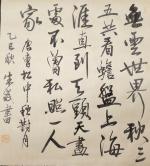 無雲世界秋三
五共看蟾盤上海
涯直到天頭天盡
處不曾私照一人
家 唐曹松中秋對月
乙巳秋 朱 書